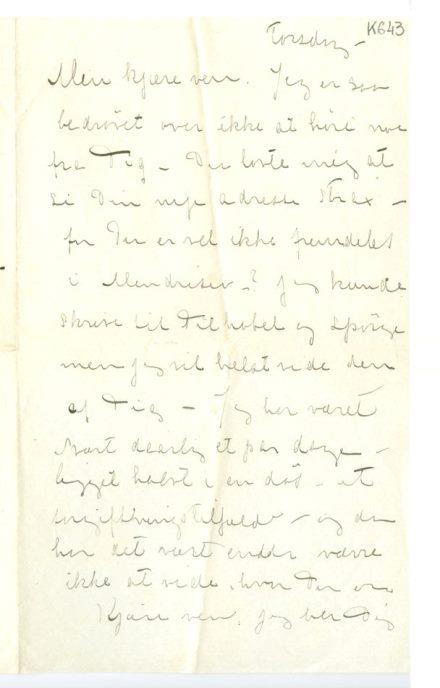 K643
Torsdag –
Min kjære ven. Jeg er saa
bedrøvet over ikke at høre noe
fra Dig – Du lovte mig at
si Din nye adresse strax –
for Du er vel ikke fremdeles
i Mendrisio –? Jeg kunde
skrive til Dilnobel og spørge
men jeg vil helst vide den
af Dig – Jeg har været
svært daarlig et par dage –
ligget halvt i en døs – et
forgiftningstilfælde – og da
har det vært endda værre
ikke at vide, hvor Du er.
Kjære ven, jeg ber Dig